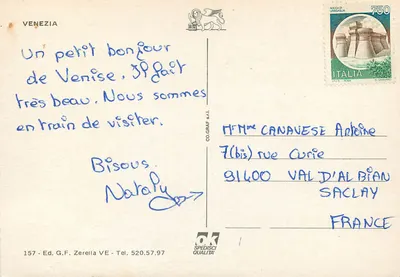 VENEZIA
Un petit bonjour
de Venise. Il fait
très beau. Nous sommes
en train de visiter.
Bisous.
Nataly
157 - Ed. G.F. Zerella VE - Tel. 520.57.97
CO-GRAF s.r.l.
750
ITALIA
M. Mme CANAVESE Antoine
7(bis) rue Curie
91400 VAL D'ALBIAN
SACLAY
FRANCE
OK
SPEDISCI
QUALITA'